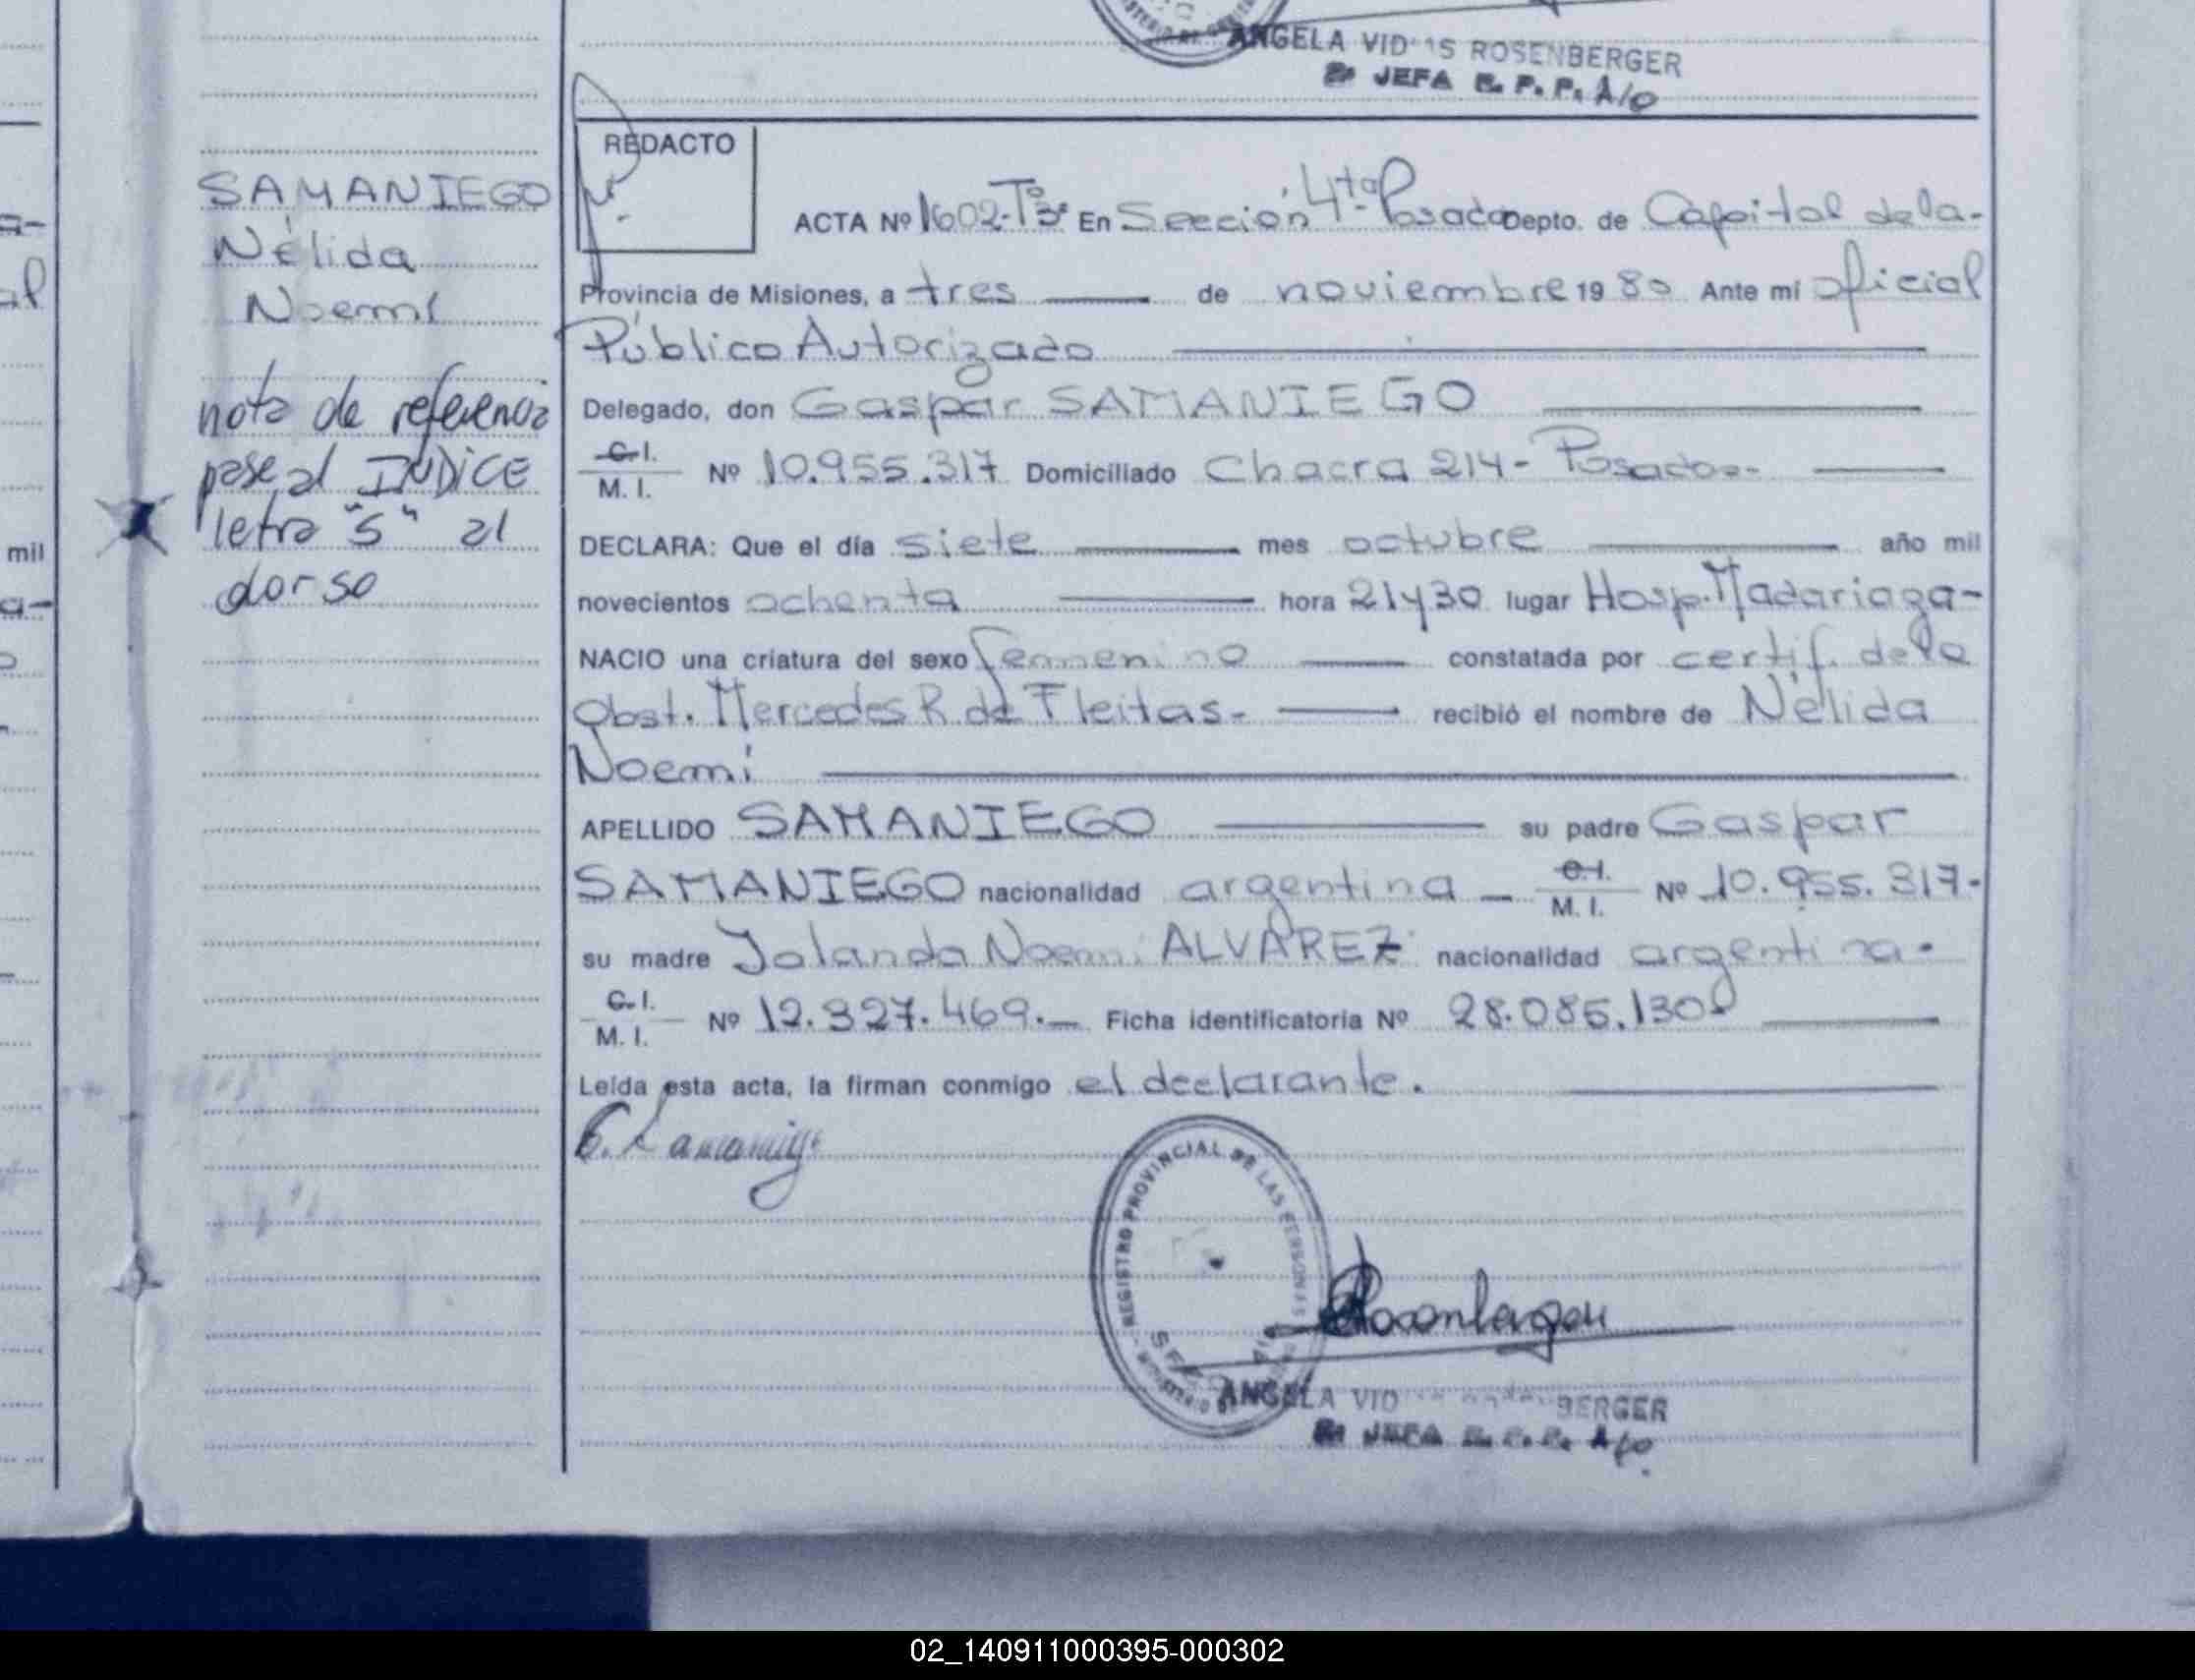 ANGELA VID ROSENBERGER
JEFA E. P. P. A/O
REDACTO
SAMANIEGO
Nélida
Noemí
nota de referencia
pase al INDICE
letra "S" al
dorso
ACTA Nº 1602-Tº3º En Sección 4ta Posadas Depto. de Capital de la-
Provincia de Misiones, a tres de noviembre 1980 Ante mi oficial
Público Autorizado
Delegado, don Gaspar SAMANIEGO
C.I. M. I. Nº 10.955.317 Domiciliado Chacra 214- Posadas-
DECLARA: Que el día siete mes octubre año mil
novecientos ochenta hora 21y30 lugar Hosp. Madariaga-
NACIO una criatura del sexo femenino constatada por certif. de la
Obst. Mercedes R. de Fleitas- recibió el nombre de Nélida
Noemí
APELLIDO SAMANIEGO su padre Gaspar
SAMANIEGO nacionalidad argentina C.I. M. I. Nº 10.955.317-
su madre Yolanda Noemí ALVAREZ nacionalidad argentina-
C.I. M. I. Nº 12.327.469.- Ficha identificatoria Nº 28.085.130
Leída esta acta, la firman conmigo el declarante.
G. Samaniego
REGISTRO PROVINCIAL DE LAS PERSONAS
Rosenberger
ANGELA VID BERGER
JEFA E. P. P. A/O
mil
02_140911000395-000302